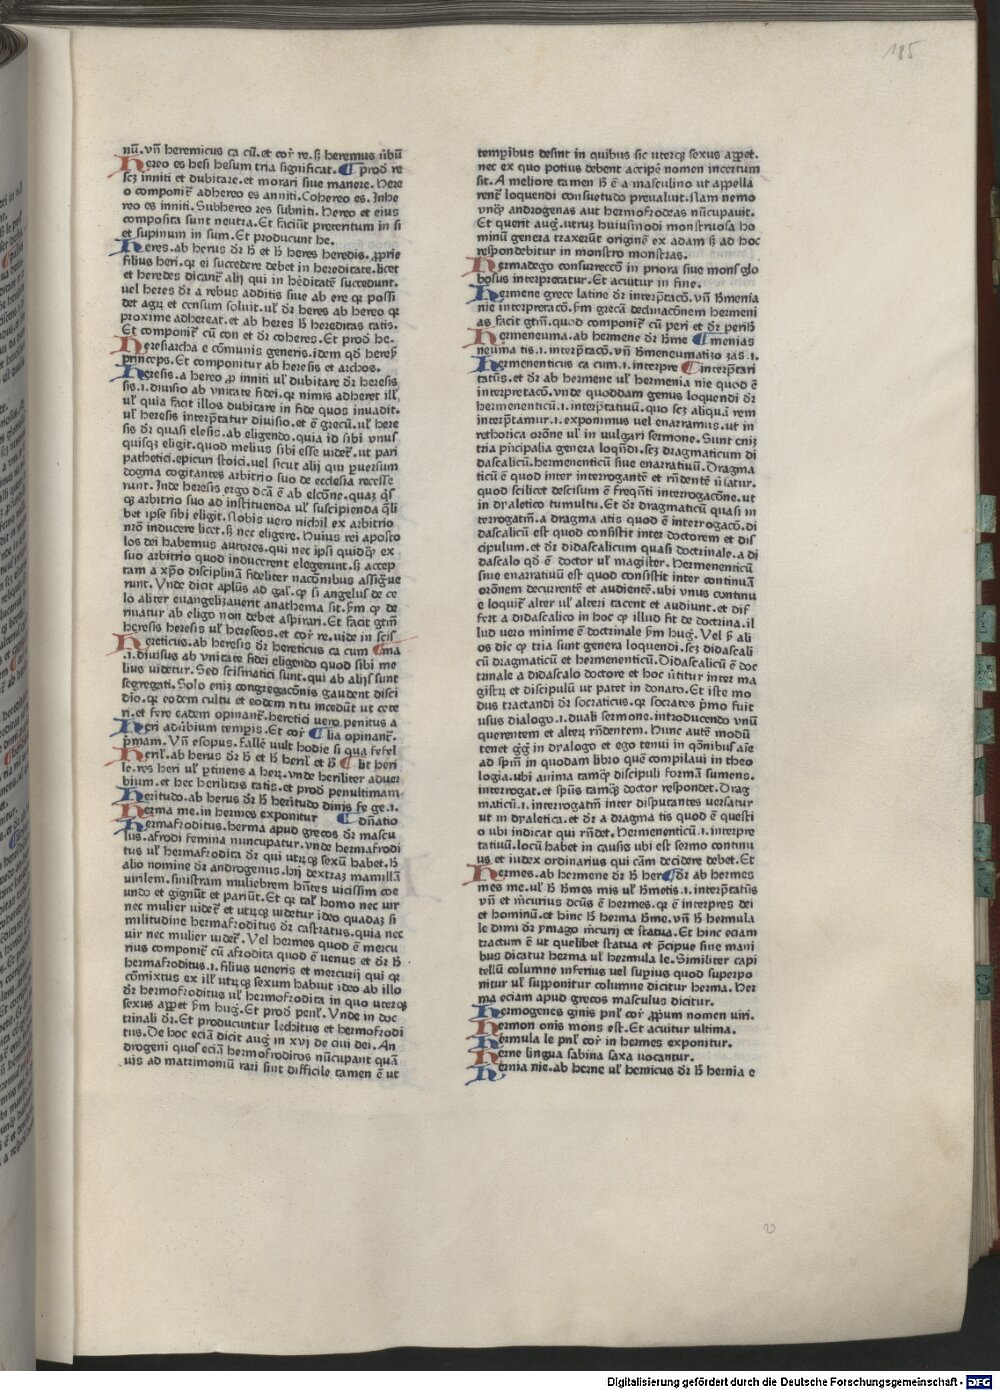 185
nū.vñ heremicus ca cū.et cor̄ re.ꝫ heremus ūbū
Hereo es hesi hesum tria significat. ¶ prod re
scꝫ inniti et dubitare.et morari siue manere. Here
o componit᷑ adhereo es anniti. Cohereo es. Inhe
reo es inniti. Subhereo res subniti. Hereo et eius
composita sunt neutra. Et faciūt preteritum in si
et supinum in sum. Et producunt he.
Heres. ab herus dr̄ et ħ heres heredis. ꝓprie
filius heri. qꝛ ei succedere debet in hereditate. licet
et heredes dicant᷑ alij qui in hēditate succedunt.
vel heres dr̄ a rebus additis siue ab ere qꝛ possi
det agꝝ et censum soluit. ul᷑ dr̄ heres ab hereo qꝛ
proxime adhereat. et ab heres ħ hereditas tatis.
Et componit᷑ cū con et dr̄ coheres. Et prod he.
Heresiarcha e cōmunis generis. idem qđ heresꝫ
princeps. Et componitur ab heresis et archos.
Heresis. a hereo ꝓ inniti ul᷑ dubitare dr̄ heresis
sis .i. diuisio ab vnitate fidei. qꝛ nimis adheret ill᷑
ul᷑ quia facit illos dubitare in fide quos inuadit.
ul᷑ heresis interp̄tatur diuisio. et ē grecū. ul᷑ here
sis dr̄ quasi elesis. ab eligendo. quia id sibi vnus
quisqꝫ eligit. quod melius sibi esse uidet᷑. ut pari
pathetici. epicuri stoici. uel sicut alij qui ꝑuersum
dogma cogitantes arbitrio suo de ecclesia recesse
runt. Inde heresis ergo dc̄a ē ab elc̄one. quaꝫ q̄s
qꝫ arbitrio suo ad instituenda ul᷑ suscipienda q̄li
bet ipse sibi eligit. Nobis uero nichil ex arbitrio
nr̄o inducere licet. ꝫ nec eligere. Huius rei aposto
los dei habemus autores. qui nec ipsi quidqꝫ ex
suo arbitrio quod inducerent elegerunt. ꝫ accep
tam a xp̄o disciplinā fideliter nac̄onibus assigue
runt. Vnde dicit aplūs ad gal᷑. ꝙ si angelus de ce
lo aliter euangelizauerit anathema sit. ẜm ꝙ de
riuatur ab eligo non debet aspirari. Et facit gtm̄
heresis heresis ul᷑ hereseos. et cor̄ re. uide in scis
Hereticus. ab heresis dr̄ hereticus ca cum ¶ma
.i. diuisus ab vnitate fidei eligendo quod sibi me
lius uidetur. Sed scismatici sunt. qui ab alijs sunt
segregati. Solo eniꝫ congregac̄onis gaudent disci
dio. qꝛ eodem cultu et eodem ritu incedūt ut cete
ri. et fere eadem opinant᷑. heretici uero penitus a
Heri adūbium temp̄is. Et cor̄ ¶ lia opinant᷑.
p̄mam. Vn̄ esopus. Falle uult hodie si qua fefel
Heril᷑. ab herus dr̄ ħ et ħ heril᷑ et ħ ¶ lit heri
le. res heri ul᷑ ꝑtinens a herꝫ. vnde heriliter aduer
bium. et hec herilitas tatis. et prod penultimam
Heritudo. ab herus dr̄ ħ heritudo dinis fe ge .i.
Herma me. in hermes exponitur ¶ dn̄atio
Hermafroditus. herma apud grecos dr̄ mascu
lus. afrodi femina nuncupatur. vnde hermafrodi
tus ul᷑ hermafrodita dr̄ qui utrūqꝫ sexū habet. ħ
alio nomine dr̄ androgenus. hij dextraꝫ mamillā
virilem. sinistram muliebrem hn̄tes vicissim coe
undo et gignūt et pariūt. Et qꝛ tal᷑ homo nec uir
nec mulier uidet᷑ et utrūqꝫ uidetur ideo quadaꝫ si
militudine hermafroditus dr̄ castratus. quia nec
uir nec mulier uidet᷑. Vel hermes quod ē mercu
rius componit᷑ cū afrodita quod ē uenus et dr̄ ħ
hermafroditus .i. filius veneris et mercurij qui qꝛ
cōmixtus ex ill᷑ utrūqꝫ sexum habuit ideo ab illo
dr̄ hermofroditus ul᷑ hermofrodita in quo uterqꝫ
sexus appet ẜm hug. Et prod penl᷑. Vnde in doc
trinali dr̄. Et producuntur lechitus et hermofrodi
tus. De hoc eciā dicit aug᷑ in xvj de ciui dei. An
drogeni quos eciā hermofroditos nūcupant quā
uis ad matrimoniū rari sint difficile tamen ē ut
tempibus desint in quibus sic uterqꝫ sexus appet.
nec ex quo potius debent accipe nomen incertum
sit. A meliore tamen ħ ē a masculino ut appella
rent᷑ loquendi consuetudo preualuit. Nam nemo
vnqꝫ androgenas aut hermofrodeas nūcupauit.
Et querit aug᷑. utruꝫ huiusmodi monstruosa ho
minū genera traxerūt originē ex adam ꝫ ad hoc
respondebitur in monstro monstras.
Hermadego consurrecc̄o in priora siue mons glo
bosus interpretatur. Et acuitur in fine.
Hermene grece latine dr̄ interp̄tac̄o. vn̄ ħmenia
nie interpretac̄o. ẜm grecā declinac̄onem hermeni
as facit gtm̄. quod componit᷑ cū peri et dr̄ periħ
Hermeneuma. ab hermene dr̄ ħme ¶ menias
neuma tis .i. interp̄tac̄o. vn̄ ħmeneumatizo zas .i.
Hermeneuticus ca cum .i. interpre ¶ interp̄tari
tatiūs. et dr̄ ab hermene ul᷑ hermenia nie quod ē
interpretac̄o. vnde quoddam genus loquendi dr̄
hermeneuticū .i. interp̄tatiuū. quo scꝫ aliquā rem
interp̄tamur .i. exponimus vel enarramus. ut in
rethorica orōne ul᷑ in uulgari sermone. Sunt eniꝫ
tria p̄ncipalia genera loqn̄di. scꝫ dragmaticum di
dascalicū. hermeneuticū siue enarratiuū. Dragma
ticū ē quod inter interrogantē et rn̄dentē ūsatur.
quod scilicet descisum ē freqn̄ti interrogac̄one. ut
in dyaletico tumultu. Et dr̄ dragmaticū quasi in
terrogatm̄. a dragma atis quod ē interrogac̄o. di
dascalicū est quod consistit inter doctorem et dis
cipulum. et dr̄ didascalicum quasi doctrinale. a di
dascalo qđ ē doctor ul᷑ magister. Hermeneuticū
siue enarratiuū est quod consistit inter continuā
orōnem decurrentē et audientē. ubi vnus continu
e loquit᷑ alter ul᷑ alteri tacent et audiunt. et dif
fert a didascalico in hoc ꝙ illud fit de doctrina. il
lud uero minime ē doctrinale ẜm hug᷑. Vel ẜ ali
os dic̄ ꝙ tria sunt genera loquendi. scꝫ didascali
cū dragmaticū et hermeneuticū. Didascalicū ē doc
trinale a didascalo doctore et hoc ūtitur inter ma
gistꝝ et discipulū ut patet in donato. Et iste mo
dus tractandi dr̄ socraticus. qꝛ socrates p̄mo fuit
usus dialogo .i. duali sermone. introducendo vnū
querentem et alterꝝ rn̄dentem. Hunc autē modū
tenet g᷑g᷑ in dyalogo et ego tenui in qōnibus aīe
ad sp̄m in quodam libro quē compilaui in theo
logia. ubi anima tamqꝫ discipuli formā sumens.
interrogat. et sp̄us tamqꝫ doctor respondet. Drag
maticū .i. interrogatm̄ inter disputantes uersatur
ut in dyaletica. et dr̄ a dragma tis quod ē questi
o ubi indicat qui rn̄det. Hermeneuticū .i. interpre
tatiuū. locū habet in causis ubi est sermo continu
us et iudex ordinarius qui cām decidere debet. Et
Hermes. ab hermene dr̄ ħ her ¶ dr̄ ab hermes
mes me. ul᷑ ħ ħmes mis ul᷑ ħmetis .i. interp̄tatiūs
vn̄ et mcurius dcūs ē hermes. qꝛ ē interpres dei
et hominū. et hinc ħ herma ħme. vn̄ ħ hermula
le dimi dr̄ ymago mcurij et statua. Et hinc eciam
tractum ē ut quelibet statua et p̄cipue sine mani
bus dicatur herma ul᷑ hermula le. Similiter capi
tellū columne inferius uel supius quod superpo
nitur ul᷑ supponitur columne dicitur herma. Her
ma eciam apud grecos masculus dicitur.
Hermogenes ginis pnl᷑ cor̄ ꝓpium nomen uiri.
Hermon onis mons est. Et acuitur ultima.
Hermula le pnl᷑ cor̄ in hermes exponitur.
Herne lingua sabina saxa uocantur.
Hernia nie. ab herne ul᷑ hernicus dr̄ ħ hernia e
Digitalisierung gefördert durch die Deutsche Forschungsgemeinschaft - DFG